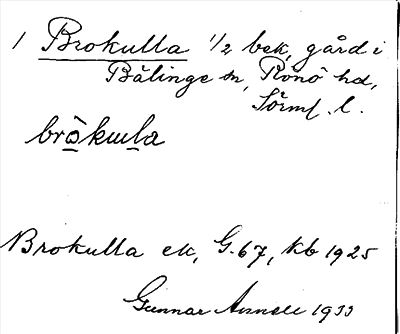 1 Brokulla 1/2 bek, gård i
Bälinge sn, Rönö hd,
Sörml. l.
bròkuula
Brokulla ek, G. 67, kb 1925
Gunnar 1933